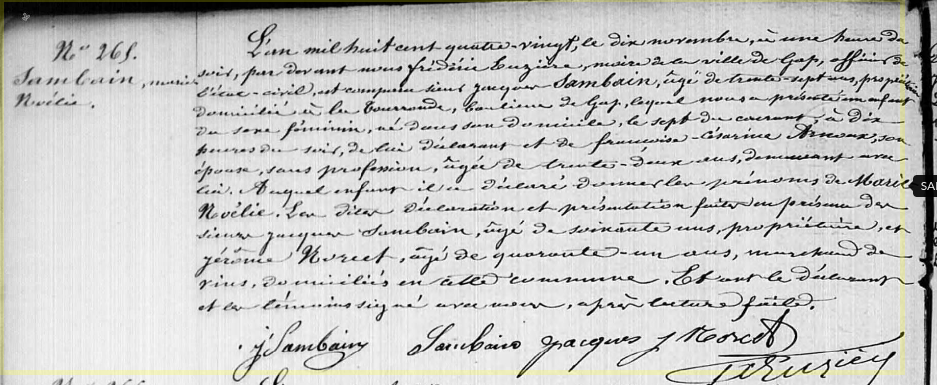 N° 265.
Sambain, marie
Noélie.
L'an mil huit cent quatre-vingt, le dix novembre, à une heure du
soir, par devant nous frédéric Euzière, maire de la ville de Gap, officier de
l'état-civil, est comparu sieur jacques Sambain, âgé de trente-sept ans, propriétaire
domicilié à la Tourronde, banlieue de Gap, lequel nous a présenté un enfant
du sexe féminin, né dans son domicile, le sept du courant, à dix
heures du soir, de lui déclarant et de françoise-Césarine Arnoux, son
épouse, sans profession, âgée de trente-deux ans, demeurant avec
lui. Auquel enfant il a déclaré donner les prénoms de Marie
Noélie. Les dites déclaration et présentation faites en présence des
sieurs jacques Sambain, âgé de soixante ans, propriétaire, et
jérôme Morcet, âgé de quarante-un ans, marchand de
vins, domiciliés en cette commune. Et ont le déclarant
et les témoins signé avec nous, après lecture faite.
j Sambain Sambain jacques j Morcet
F Euzière
SA